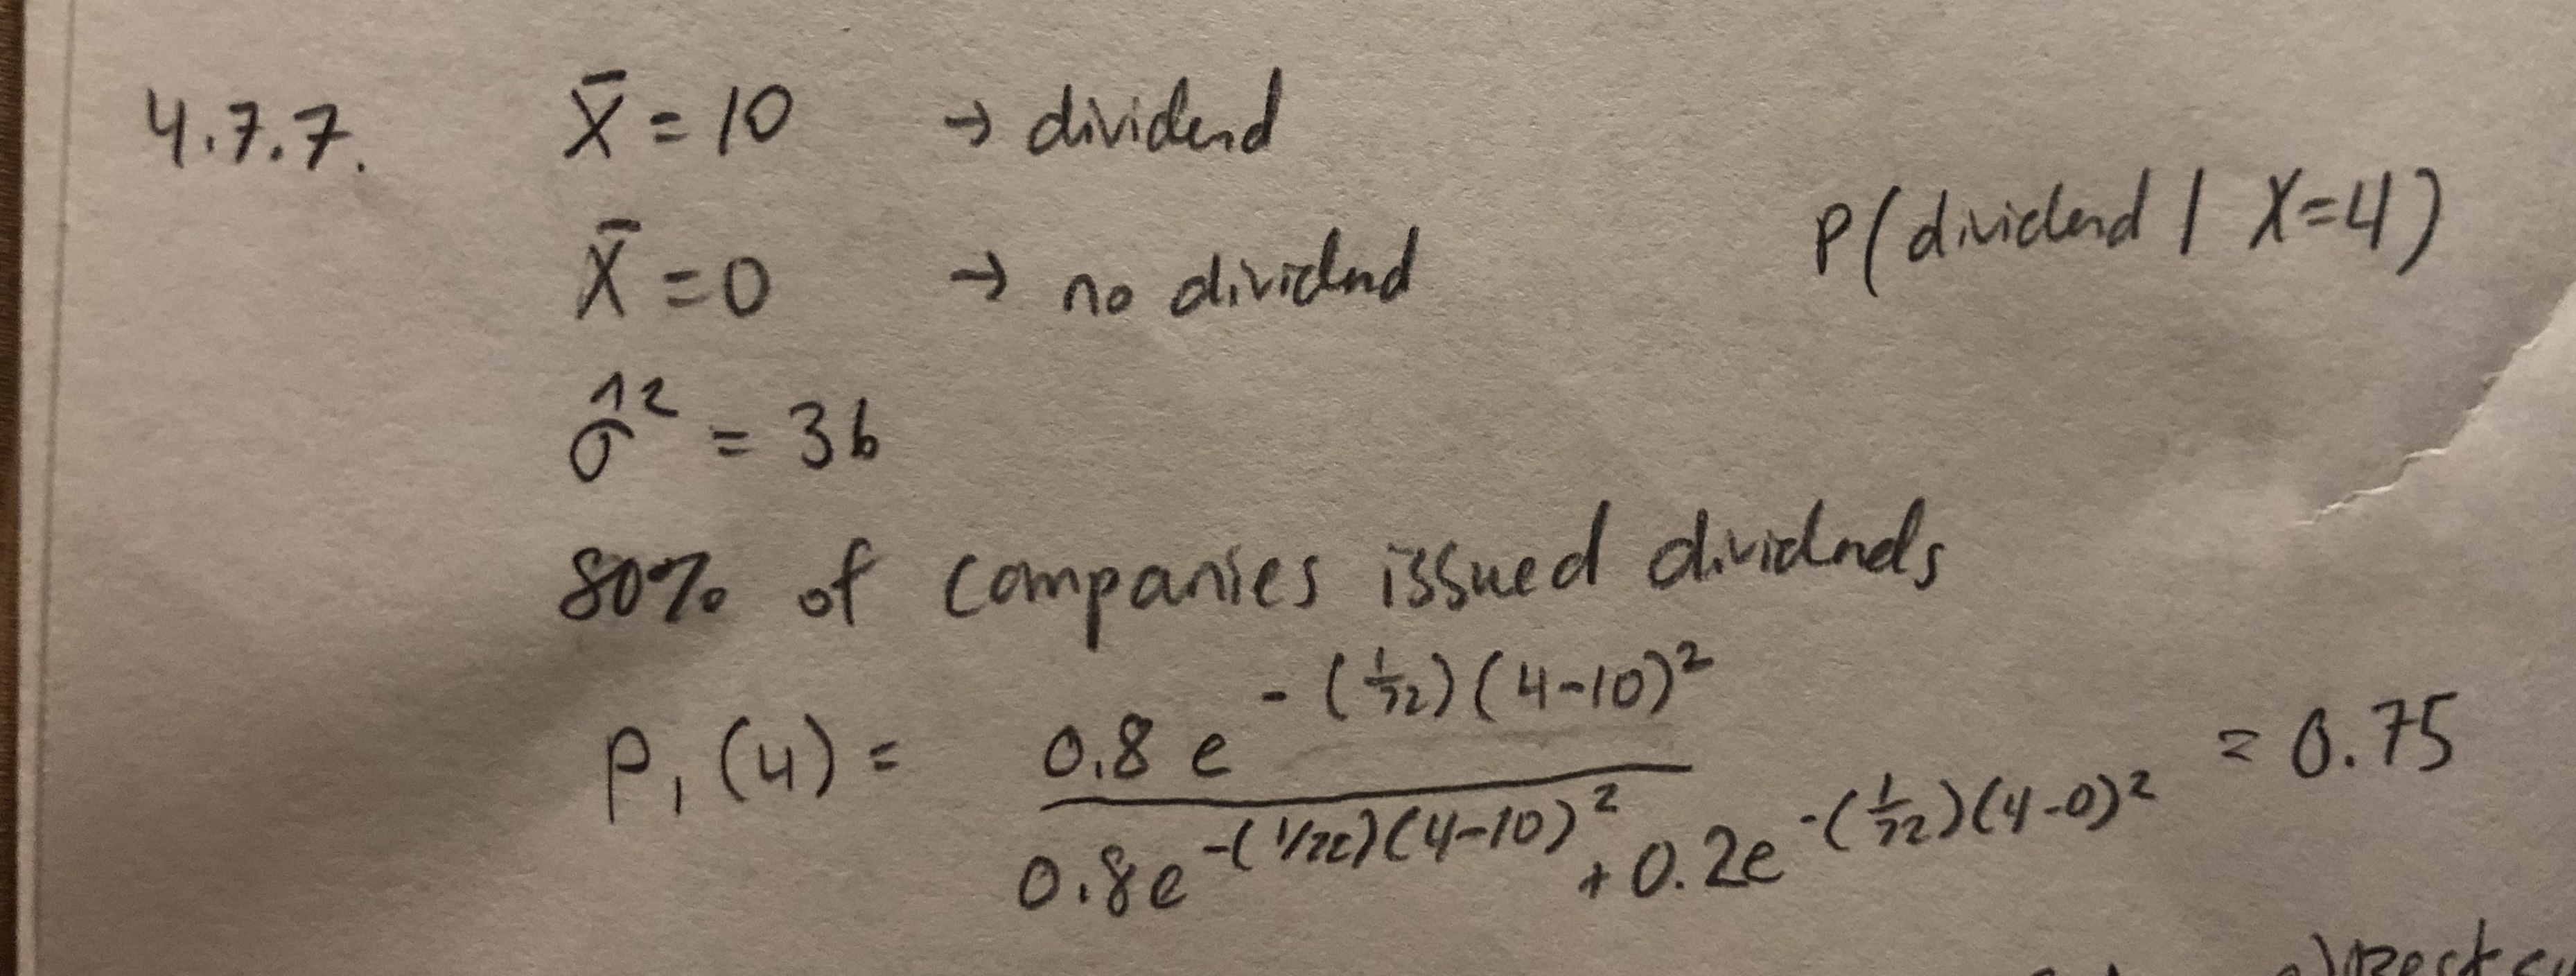 4.7.7. X̄ = 10 → dividend
X̄ = 0 → no dividend
P(dividend | X=4)
σ̂² = 36
80% of companies issued dividends
P₁(4) = 0.8 e^-(1/72)(4-10)² / 0.8e^-(1/72)(4-10)² + 0.2e^-(1/72)(4-0)² = 0.75